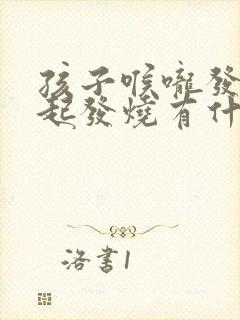 孩子喉嚨發
起發燒有什
洛書1